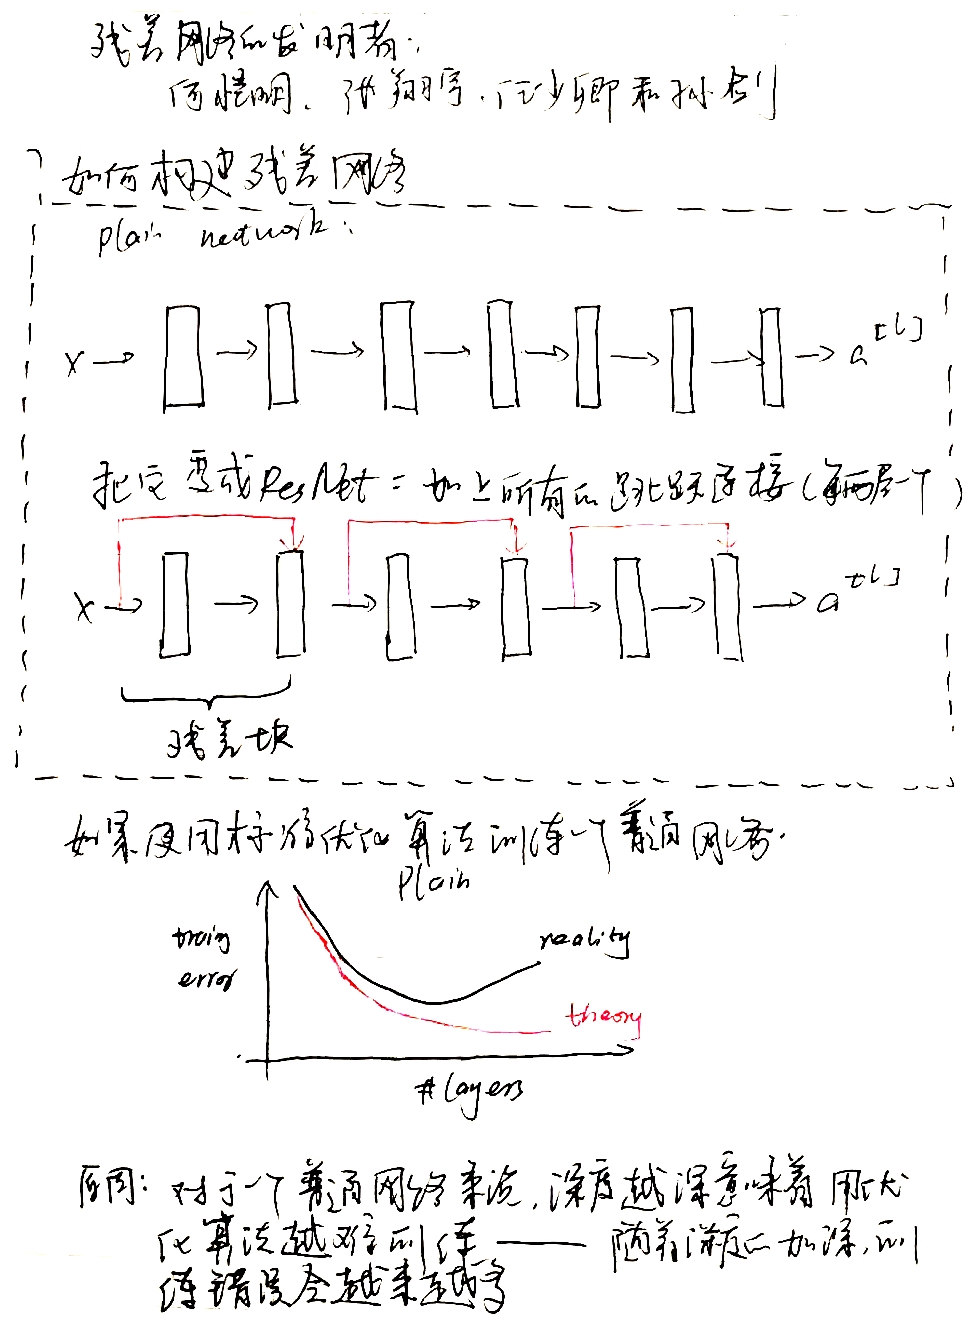 残差网络的发明者:
何恺明、张翔宇、任少卿和孙剑
如何构建残差网络
Plain network:
x → → → → → → → → a[l]
把它变成ResNet = 加上所有的跳跃连接(每两层一个)
x → → → → → → → a[l]
残差块
如果使用标准优化算法训练一个普通网络.
Plain
train
error
reality
theory
# layers
原因: 对于一个普通网络来说,深度越深意味着用优
化算法越难训练 —— 随着深度的加深,训
练错误会越来越多